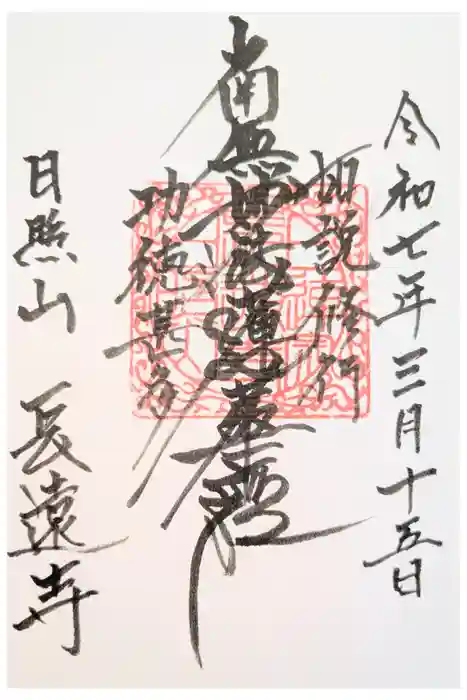 令和七年三月十五日
如説修行
南無妙法蓮華経
功徳甚多
日照山 長遠寺